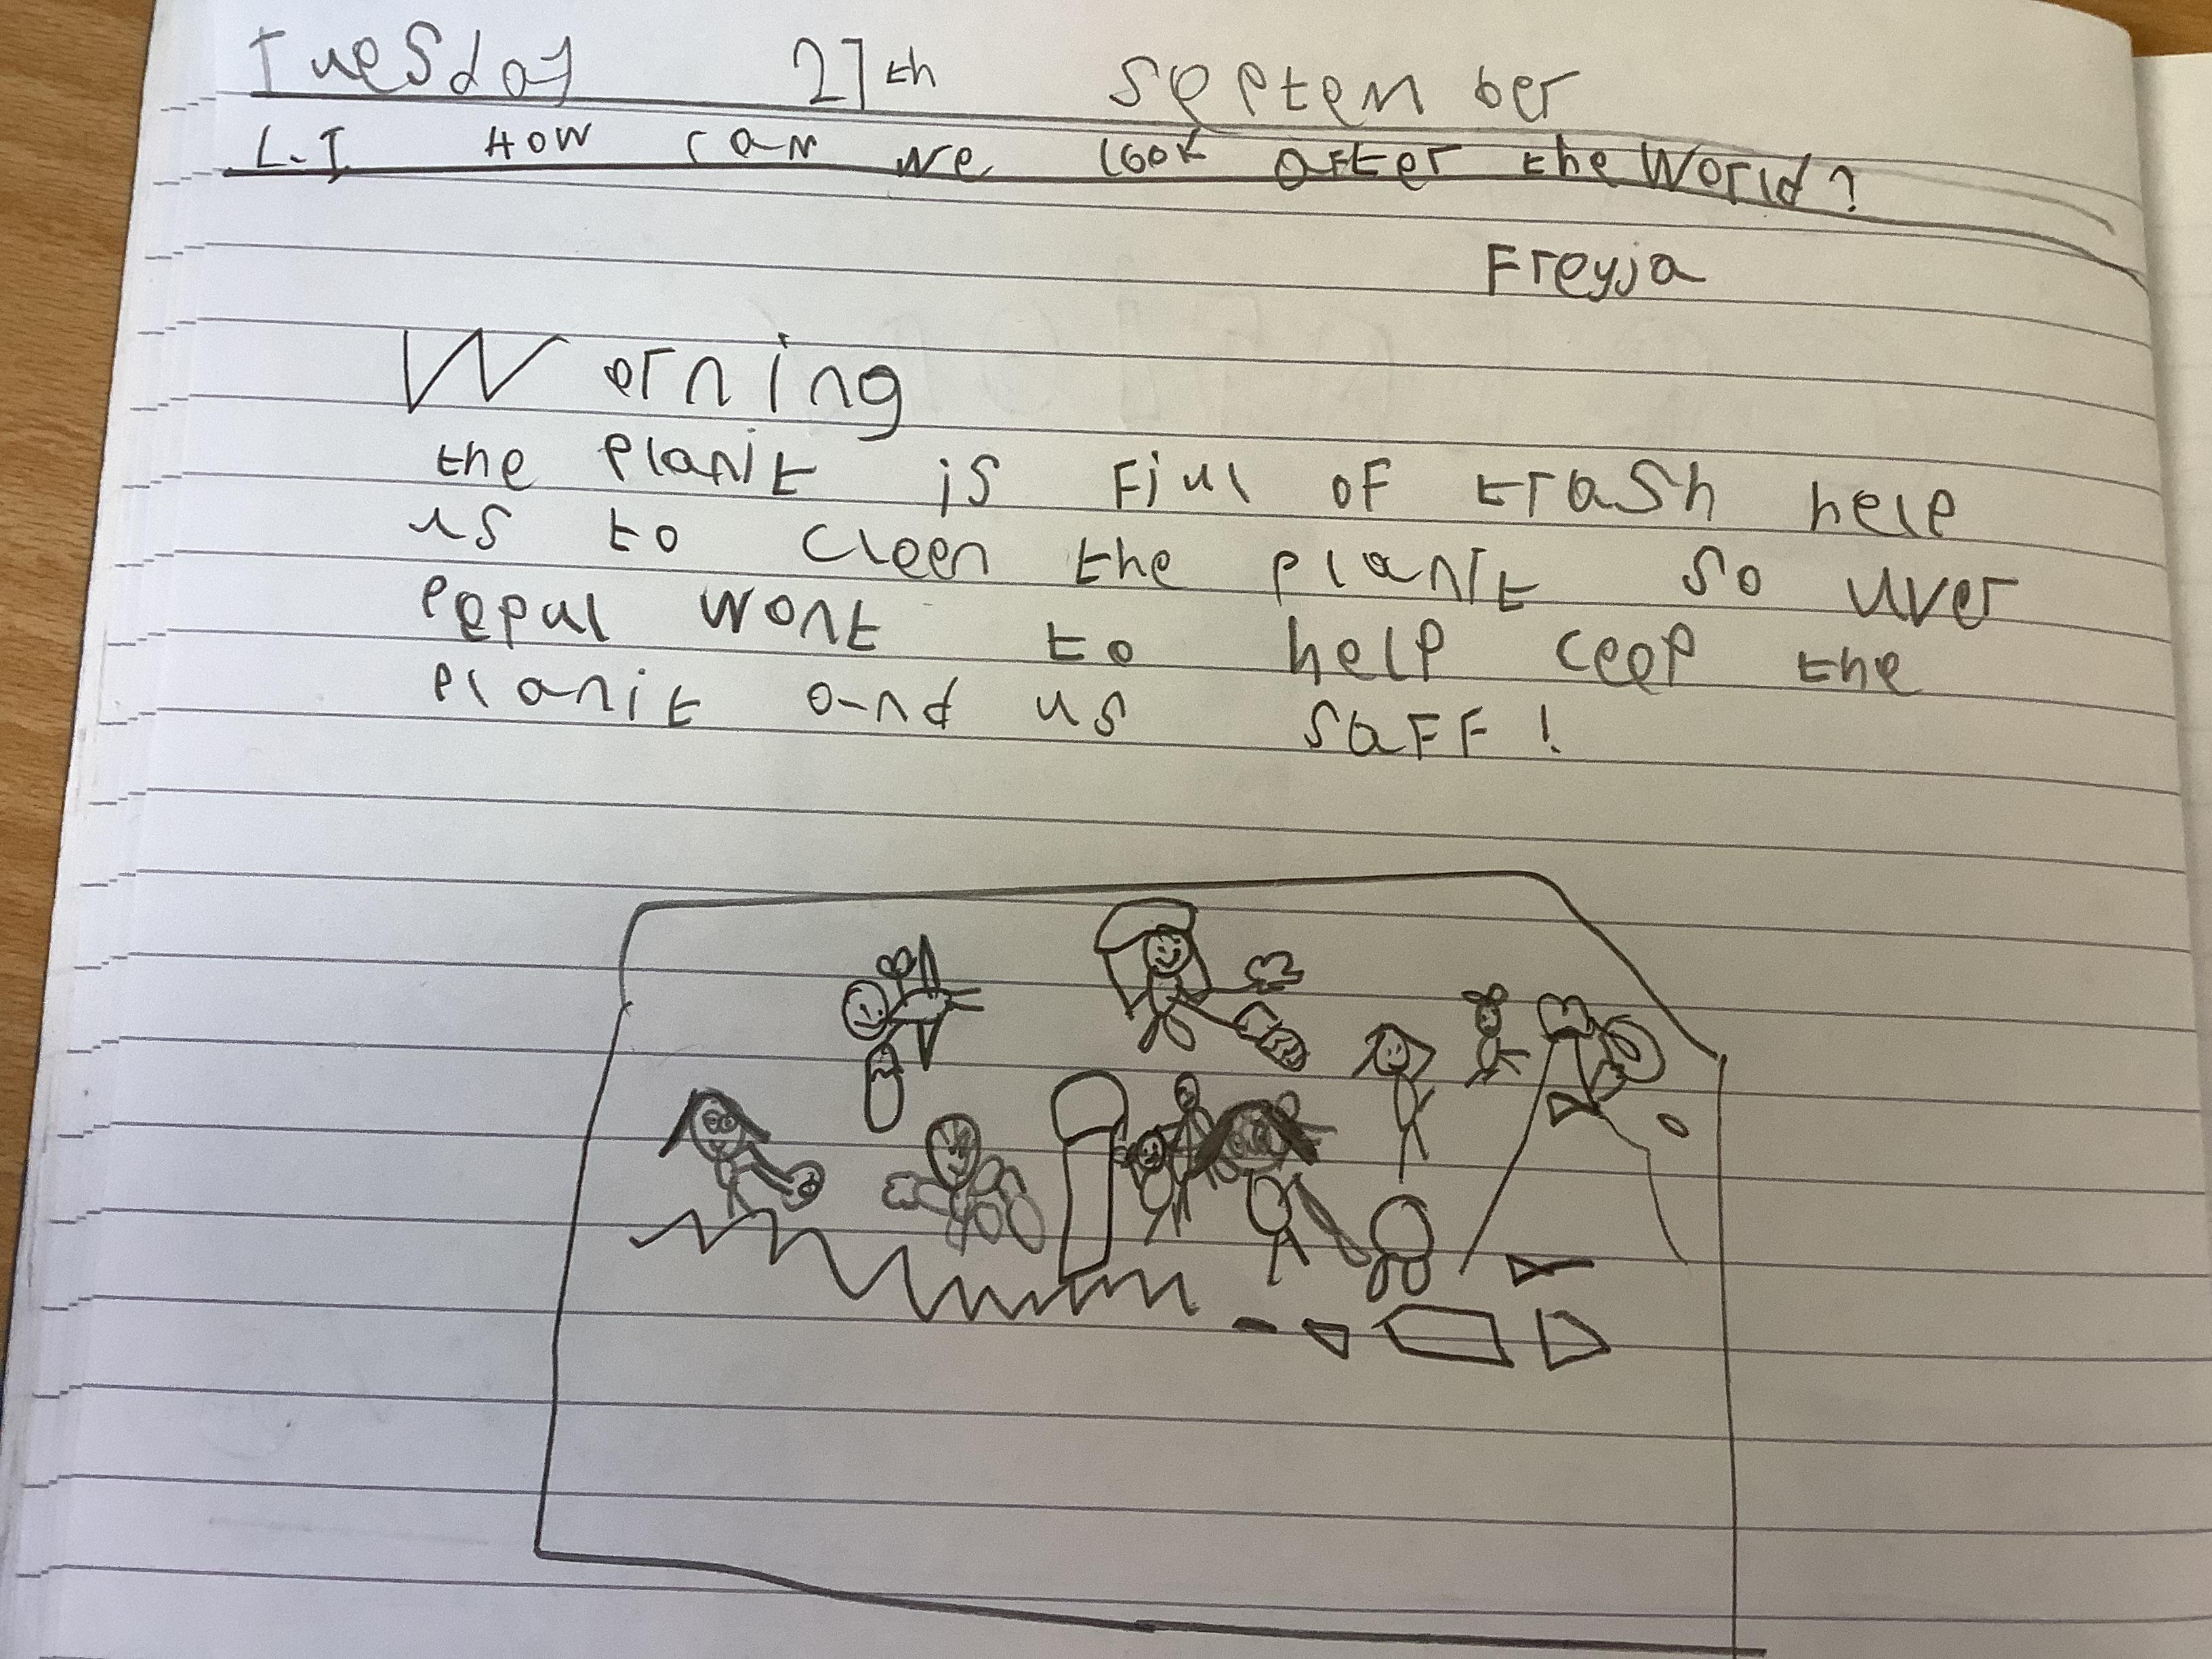 Tuesday 27th September
L.I How can we look after the World?
Freyja
Worning
the planit is Fiul of trash help
us to cleen the planit so uver
pepul wont to help ceep the
planit and us saff!